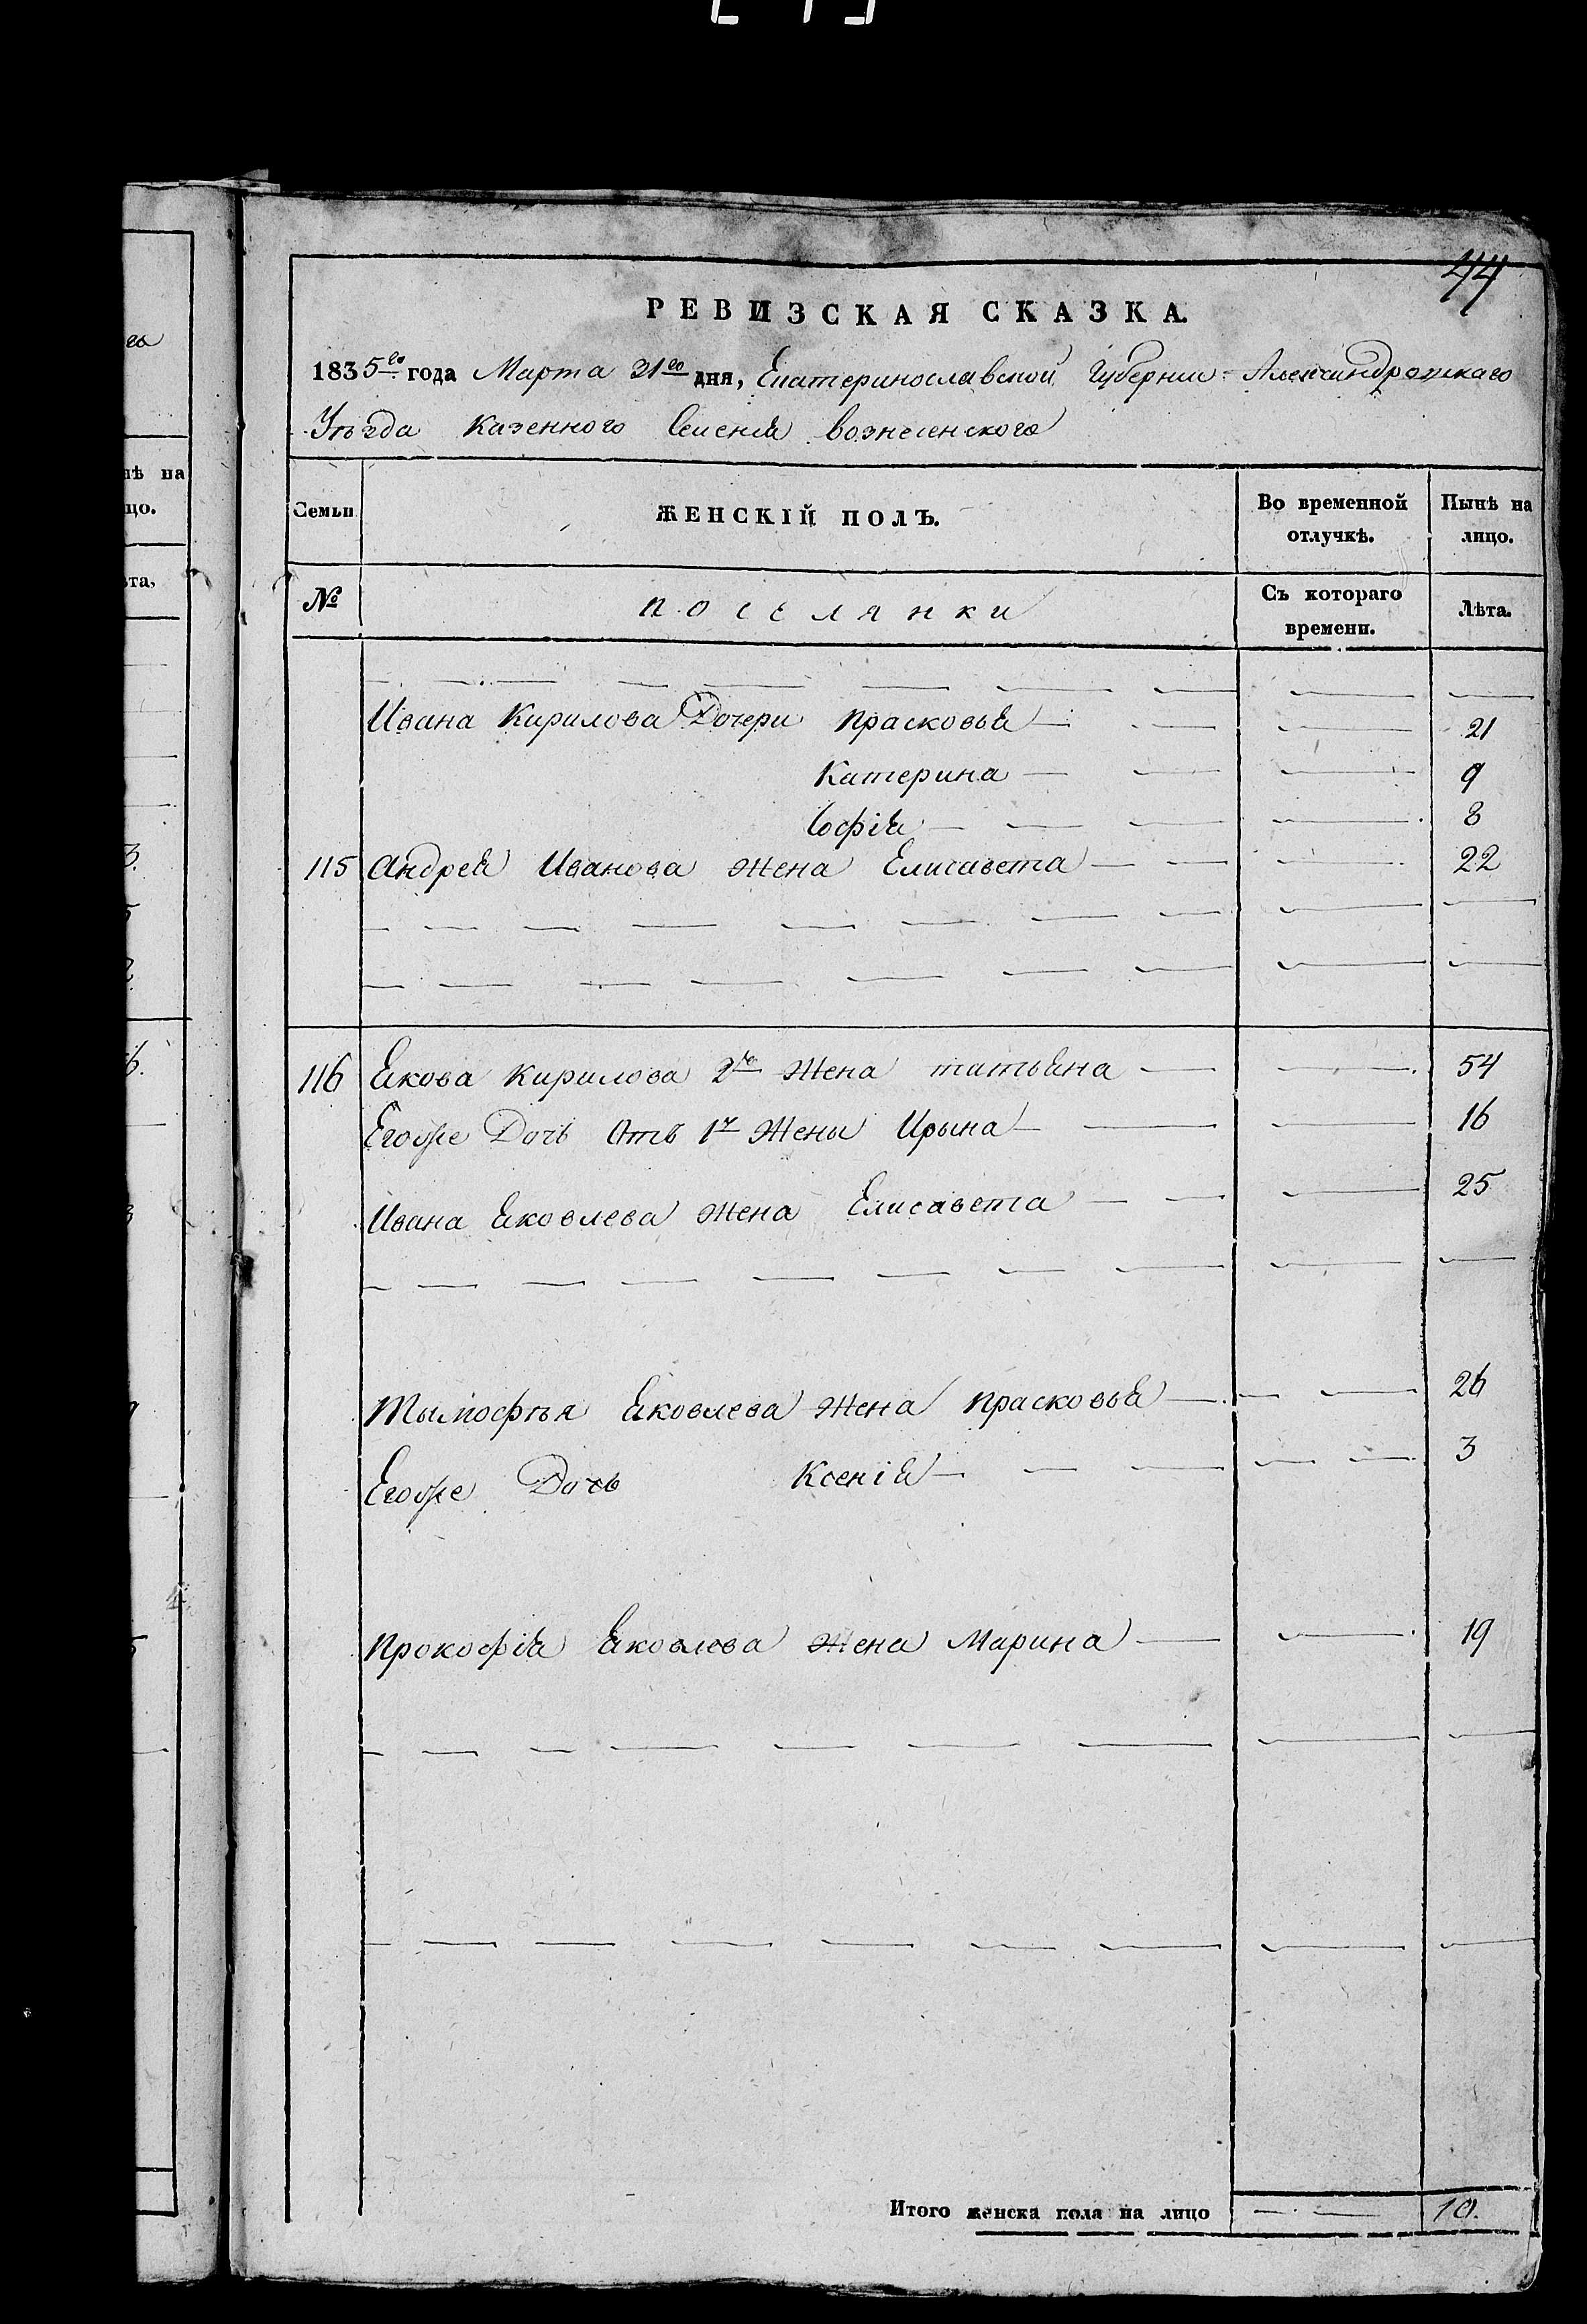 44
РЕВИЗСКАЯ СКАЗКА.
1835го года Марта 31го дня, Екатеринославской Губернии Александровскаго
Уѣзда Казенного Селения Вознесенского
Семьи ЖЕНСКІЙ ПОЛЪ. Во временной отлучкѣ. Нынѣ на лицо.
№ поселянки Съ котораго времени. Лѣта.
Ивана Кирилова Дочери Прасковья 21
Катерина 9
Софія 8
115 Андрея Иванова жена Елисавета 22
116 Якова Кирилова 2я Жена татьяна 54
Егоже Дочь Отъ 1й Жены Ирына 16
Ивана Яковлева жена Елисавета 25
Тымофѣя Яковлева жена Прасковья 26
Егоже Дочь Ксенія 3
Прокофія Яковлева жена Марина 19
Итого женска пола на лицо 10.
нѣ на
цо.
ѣта,